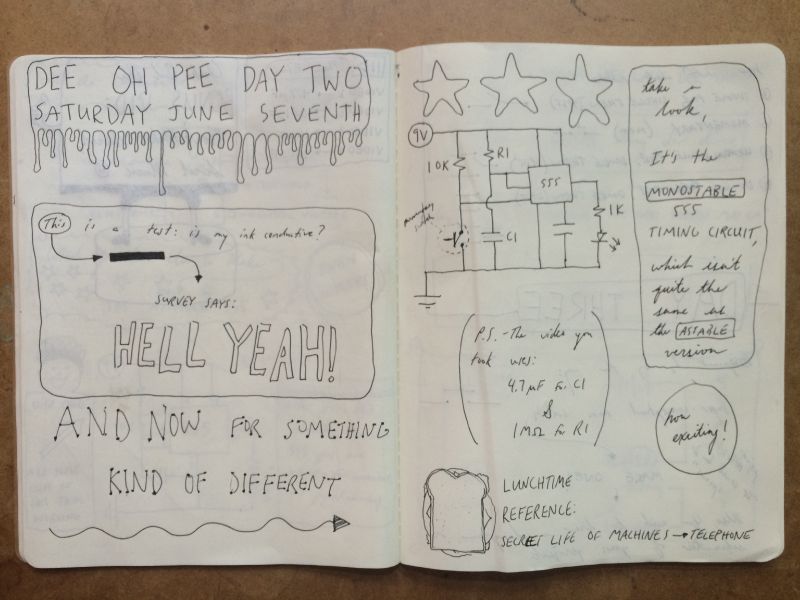 DEE OH PEE DAY TWO
SATURDAY JUNE SEVENTH
This is a test: is my ink conductive?
SURVEY SAYS:
HELL YEAH!
AND NOW FOR SOMETHING
KIND OF DIFFERENT
9V
10K
R1
555
1K
momentary
switch
C1
take a
look,
It's the
MONOSTABLE
555
TIMING CIRCUIT,
which isn't
quite the
same as
the ASTABLE
version
P.S. - The video you
took uses:
4.7µF for C1
&
1MΩ for R1
how
exciting!
LUNCHTIME
REFERENCE:
SECRET LIFE OF MACHINES → TELEPHONE